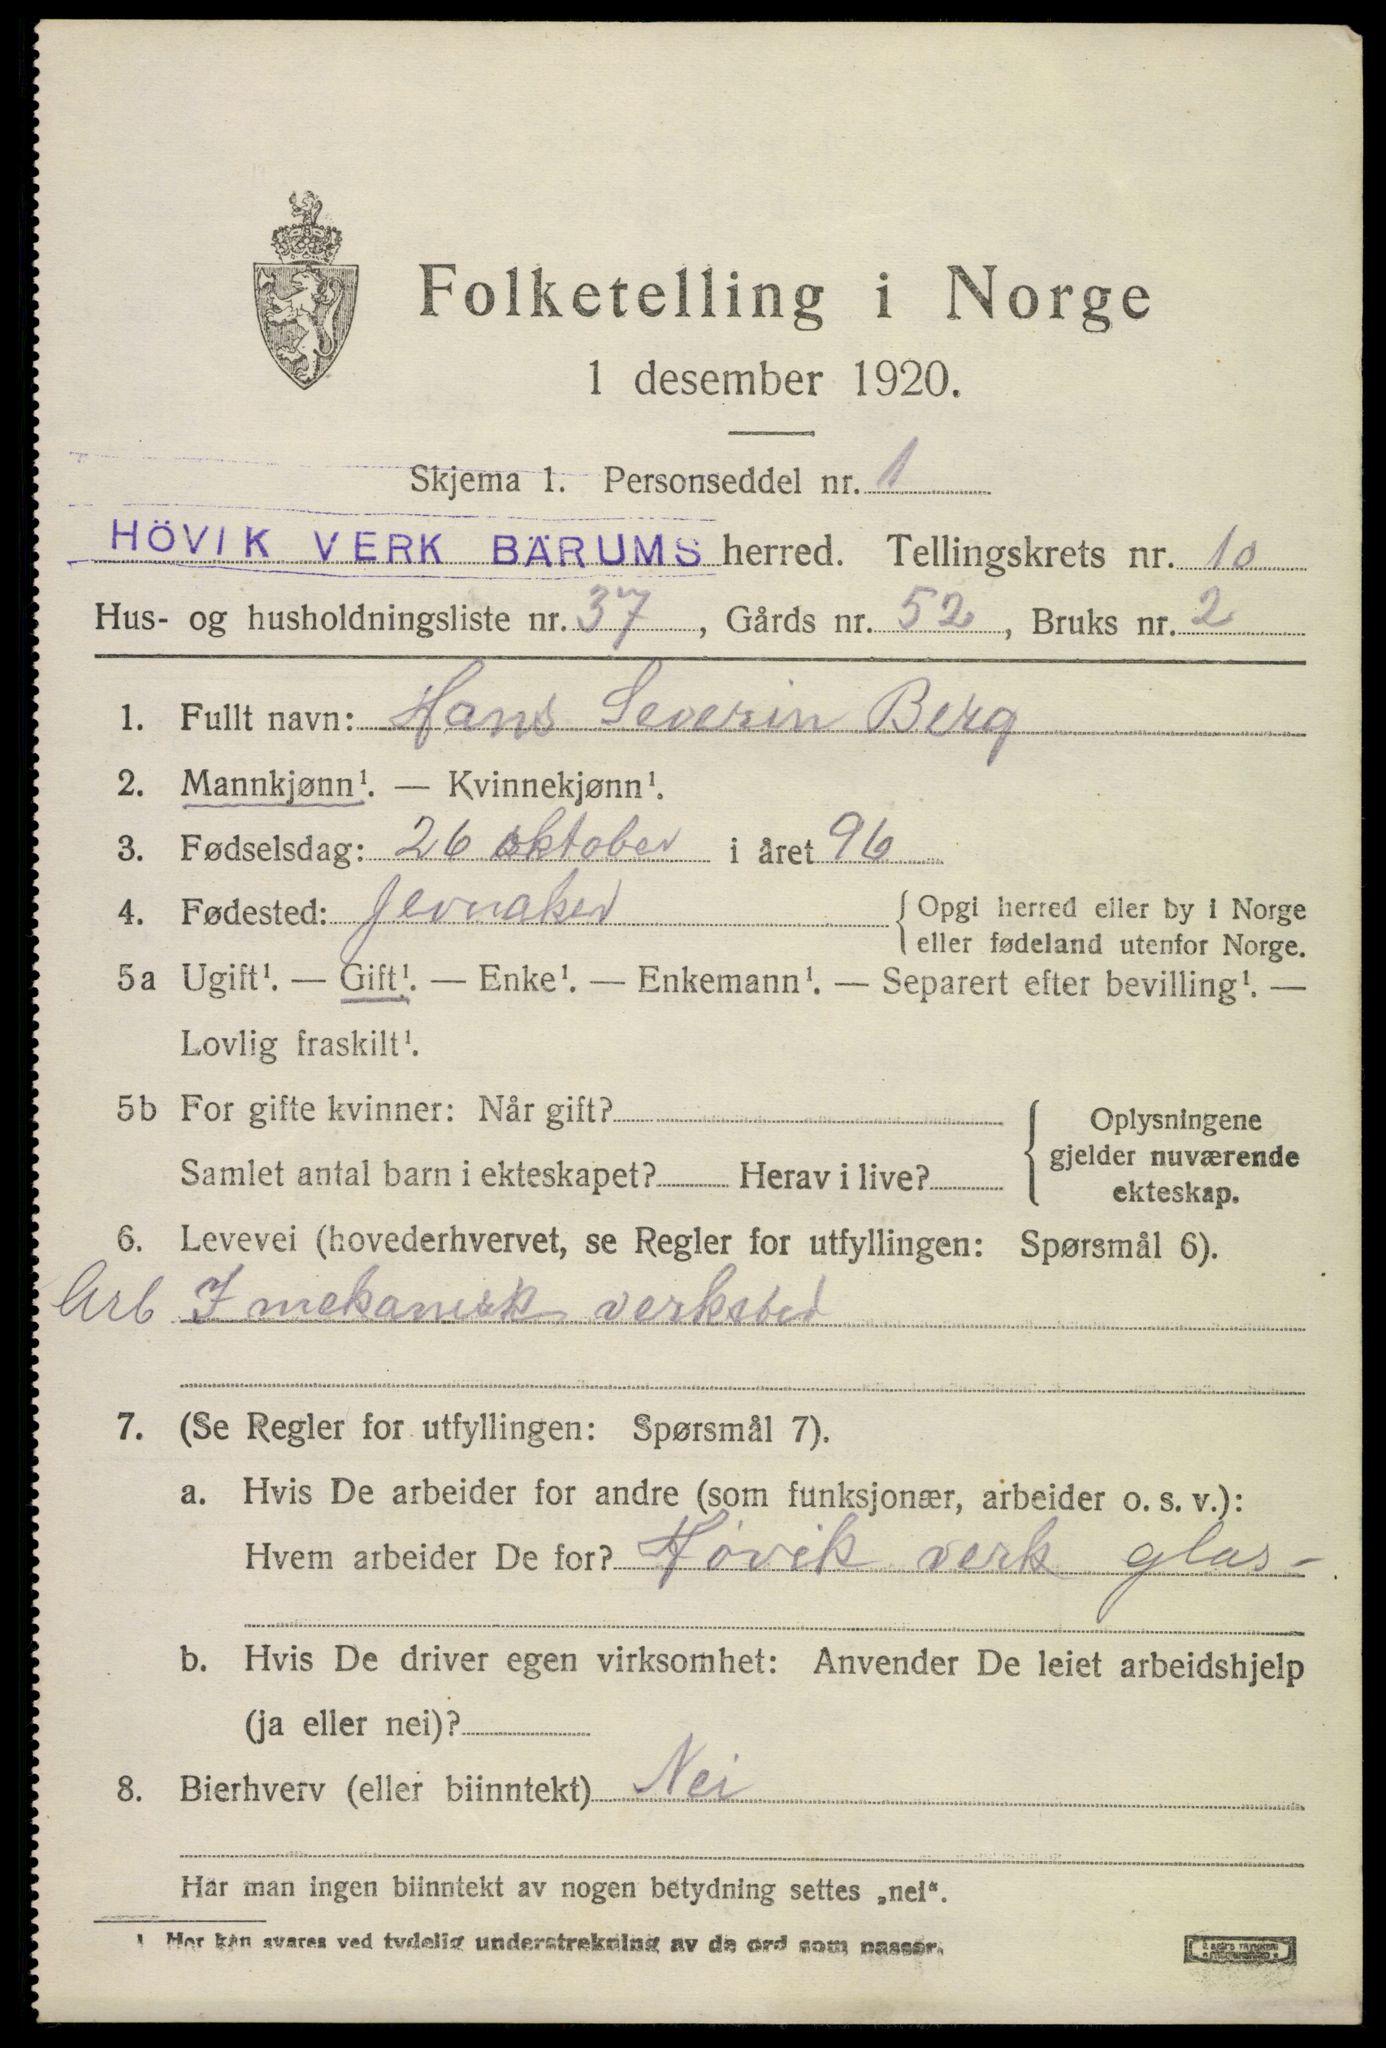 Folketelling i Norge
1 desember 1920.
Skjema 1. Personseddel nr. 1
HÖVIK VERK BÄRUMS herred. Tellingskrets nr. 10
Hus- og husholdningsliste nr. 37, Gårds nr. 52, Bruks nr. 2
1. Fullt navn: Hans Severin Berg
2. Mannkjønn¹. — Kvinnekjønn¹.
3. Fødselsdag: 26 oktober i året 96
4. Fødested: Jevnaker { Opgi herred eller by i Norge
eller fødeland utenfor Norge.
5a Ugift¹. — Gift¹. — Enke¹. — Enkemann¹. — Separert efter bevilling¹. —
Lovlig fraskilt¹.
5b For gifte kvinner: Når gift?
Samlet antal barn i ekteskapet? Herav i live?
{ Oplysningene
gjelder nuværende
ekteskap.
6. Levevei (hovederhvervet, se Regler for utfyllingen: Spørsmål 6).
Arb I mekanisk verksted
7. (Se Regler for utfyllingen: Spørsmål 7).
a. Hvis De arbeider for andre (som funksjonær, arbeider o. s. v.):
Hvem arbeider De for? Høvik verk glas-
b. Hvis De driver egen virksomhet: Anvender De leiet arbeidshjelp
(ja eller nei)?
8. Bierhverv (eller biinntekt) Nei
Har man ingen biinntekt av nogen betydning settes „nei“.
1 Her kan svares ved tydelig understrekning av de ord som passer.